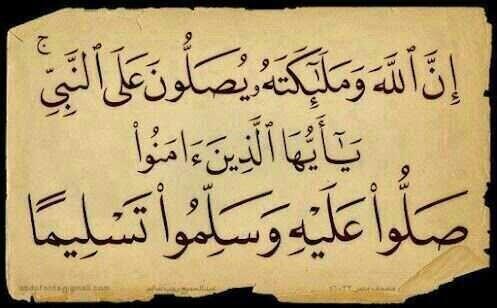 إِنَّ ٱللَّهَ وَمَلَٰٓئِكَتَهُۥ يُصَلُّونَ عَلَى ٱلنَّبِيِّ ۚ
يَٰٓأَيُّهَا ٱلَّذِينَ ءَامَنُوا۟
صَلُّوا۟ عَلَيْهِ وَسَلِّمُوا۟ تَسْلِيمًا